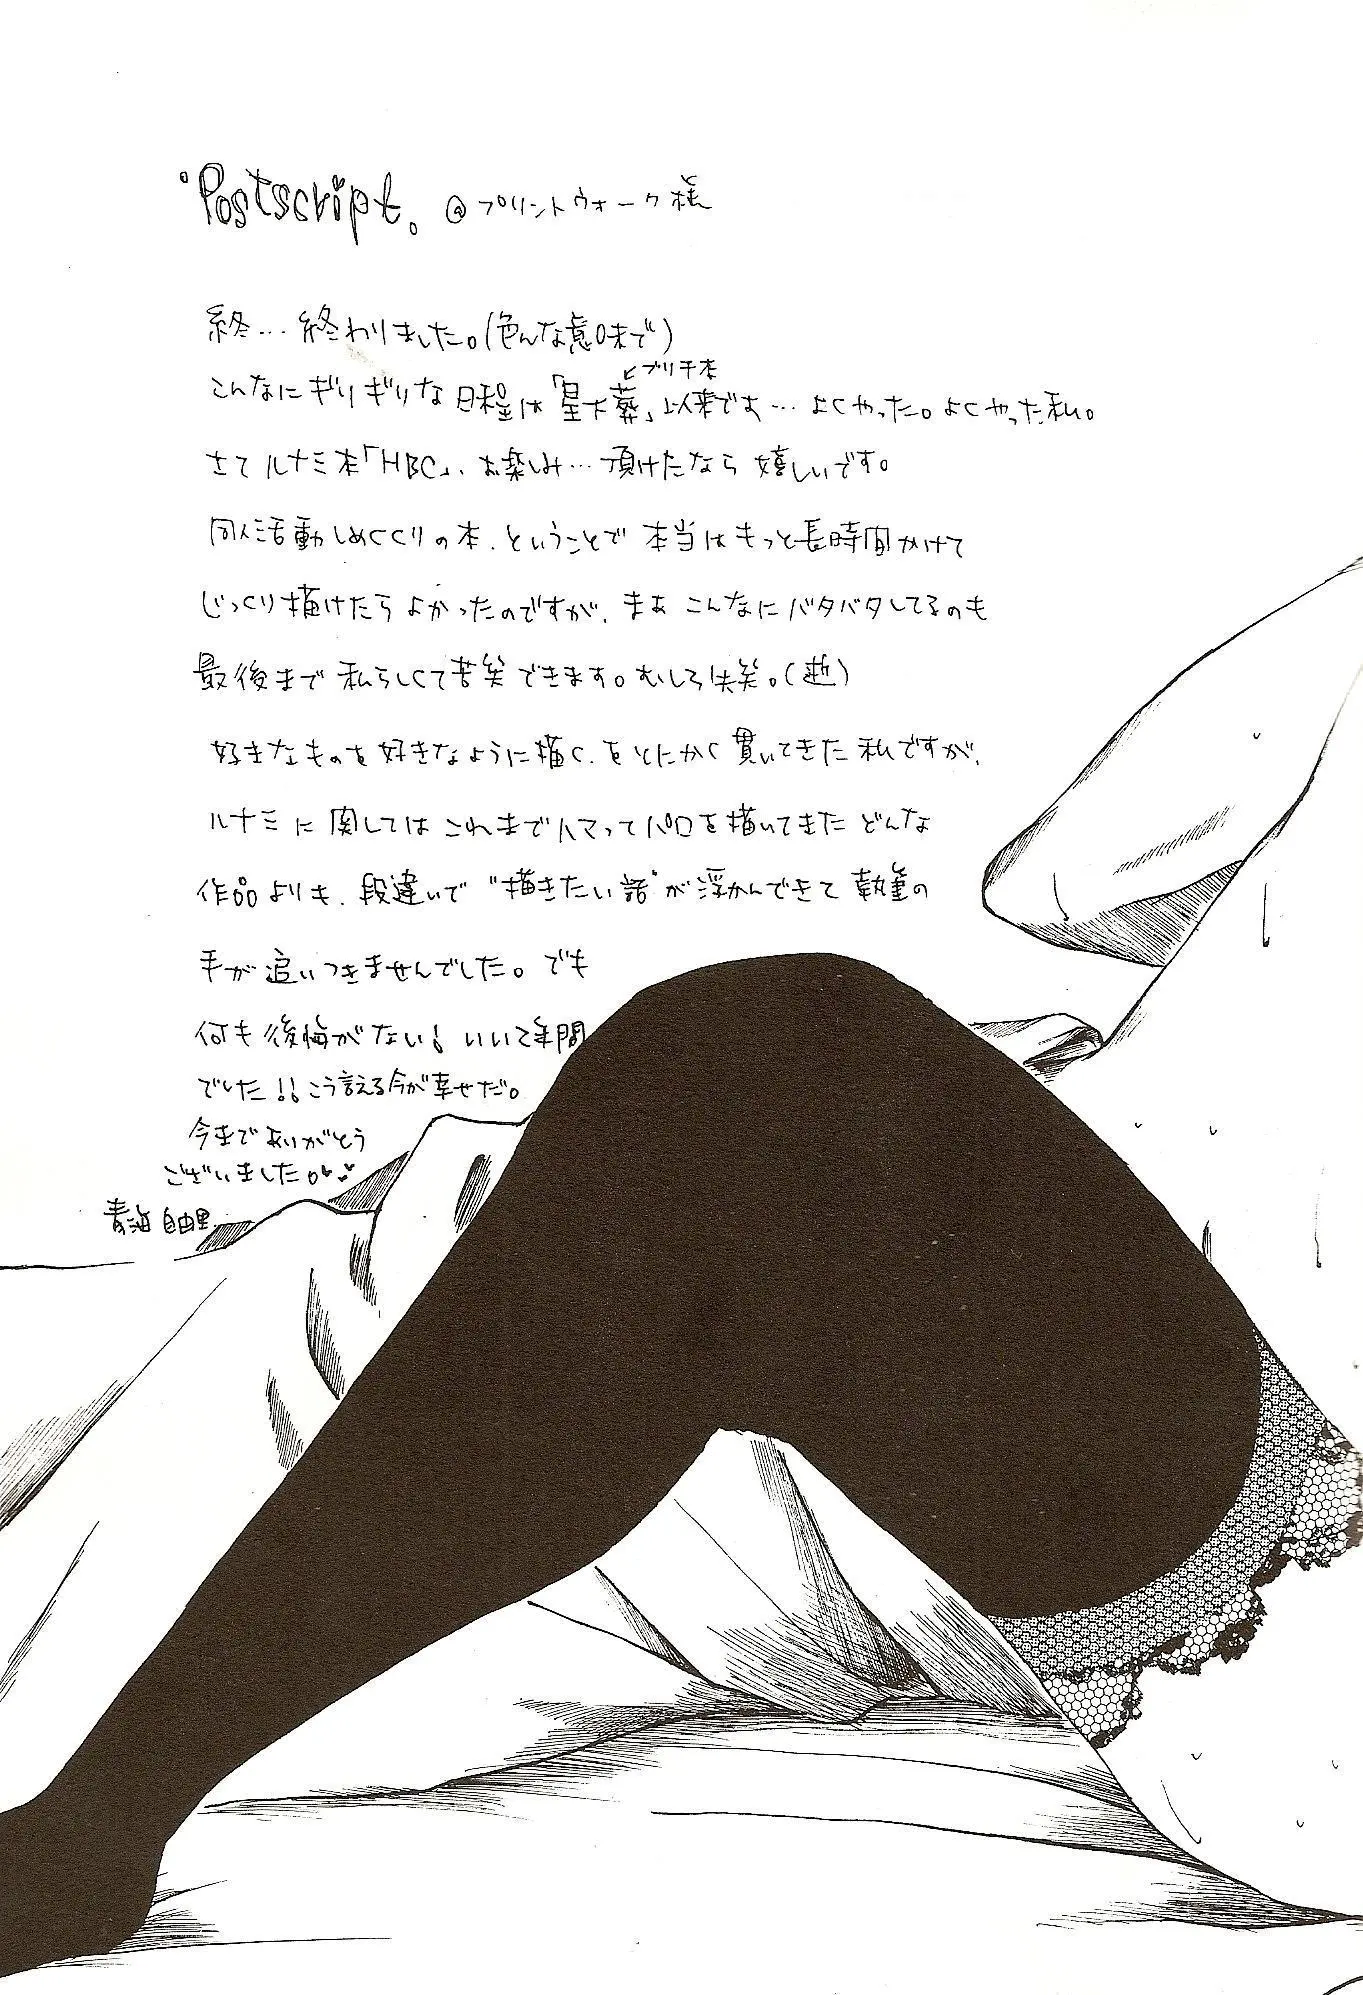 Postscript. @プリントウォーク様
終…終わりました。(色んな意味で)
こんなにギリギリな日程は「星火葬」以来です…よくやった。よくやった私。
←ブリチ本
さてルナミ本「HBC」、お楽しみ…頂けたなら嬉しいです。
同人活動しめくくりの本、ということで本当はもっと長時間かけて
じっくり描けたらよかったのですが、まぁこんなにバタバタしてるのも
最後まで私らしくて苦笑できます。むしろ失笑。
好きなものを好きなように描く、をとにかく貫いてきた私ですが、
ルナミに関してはこれまでハマってパロを描いてきたどんな
作品よりも、段違いで"描きたい話"が浮かんできて執筆の
手が追いつきませんでした。でも
何も後悔がない!いい2年間
でした!!こう言える今が幸せだ。
今までありがとう
ございました。
青海 自由里